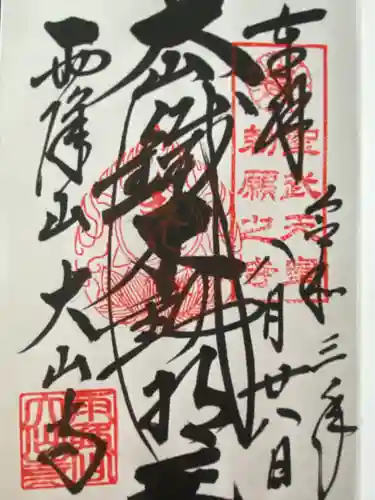 奉拝
令和三年
八月廿八日
聖武天皇
勅願之寺
大山鐵不動
雨降山大山寺